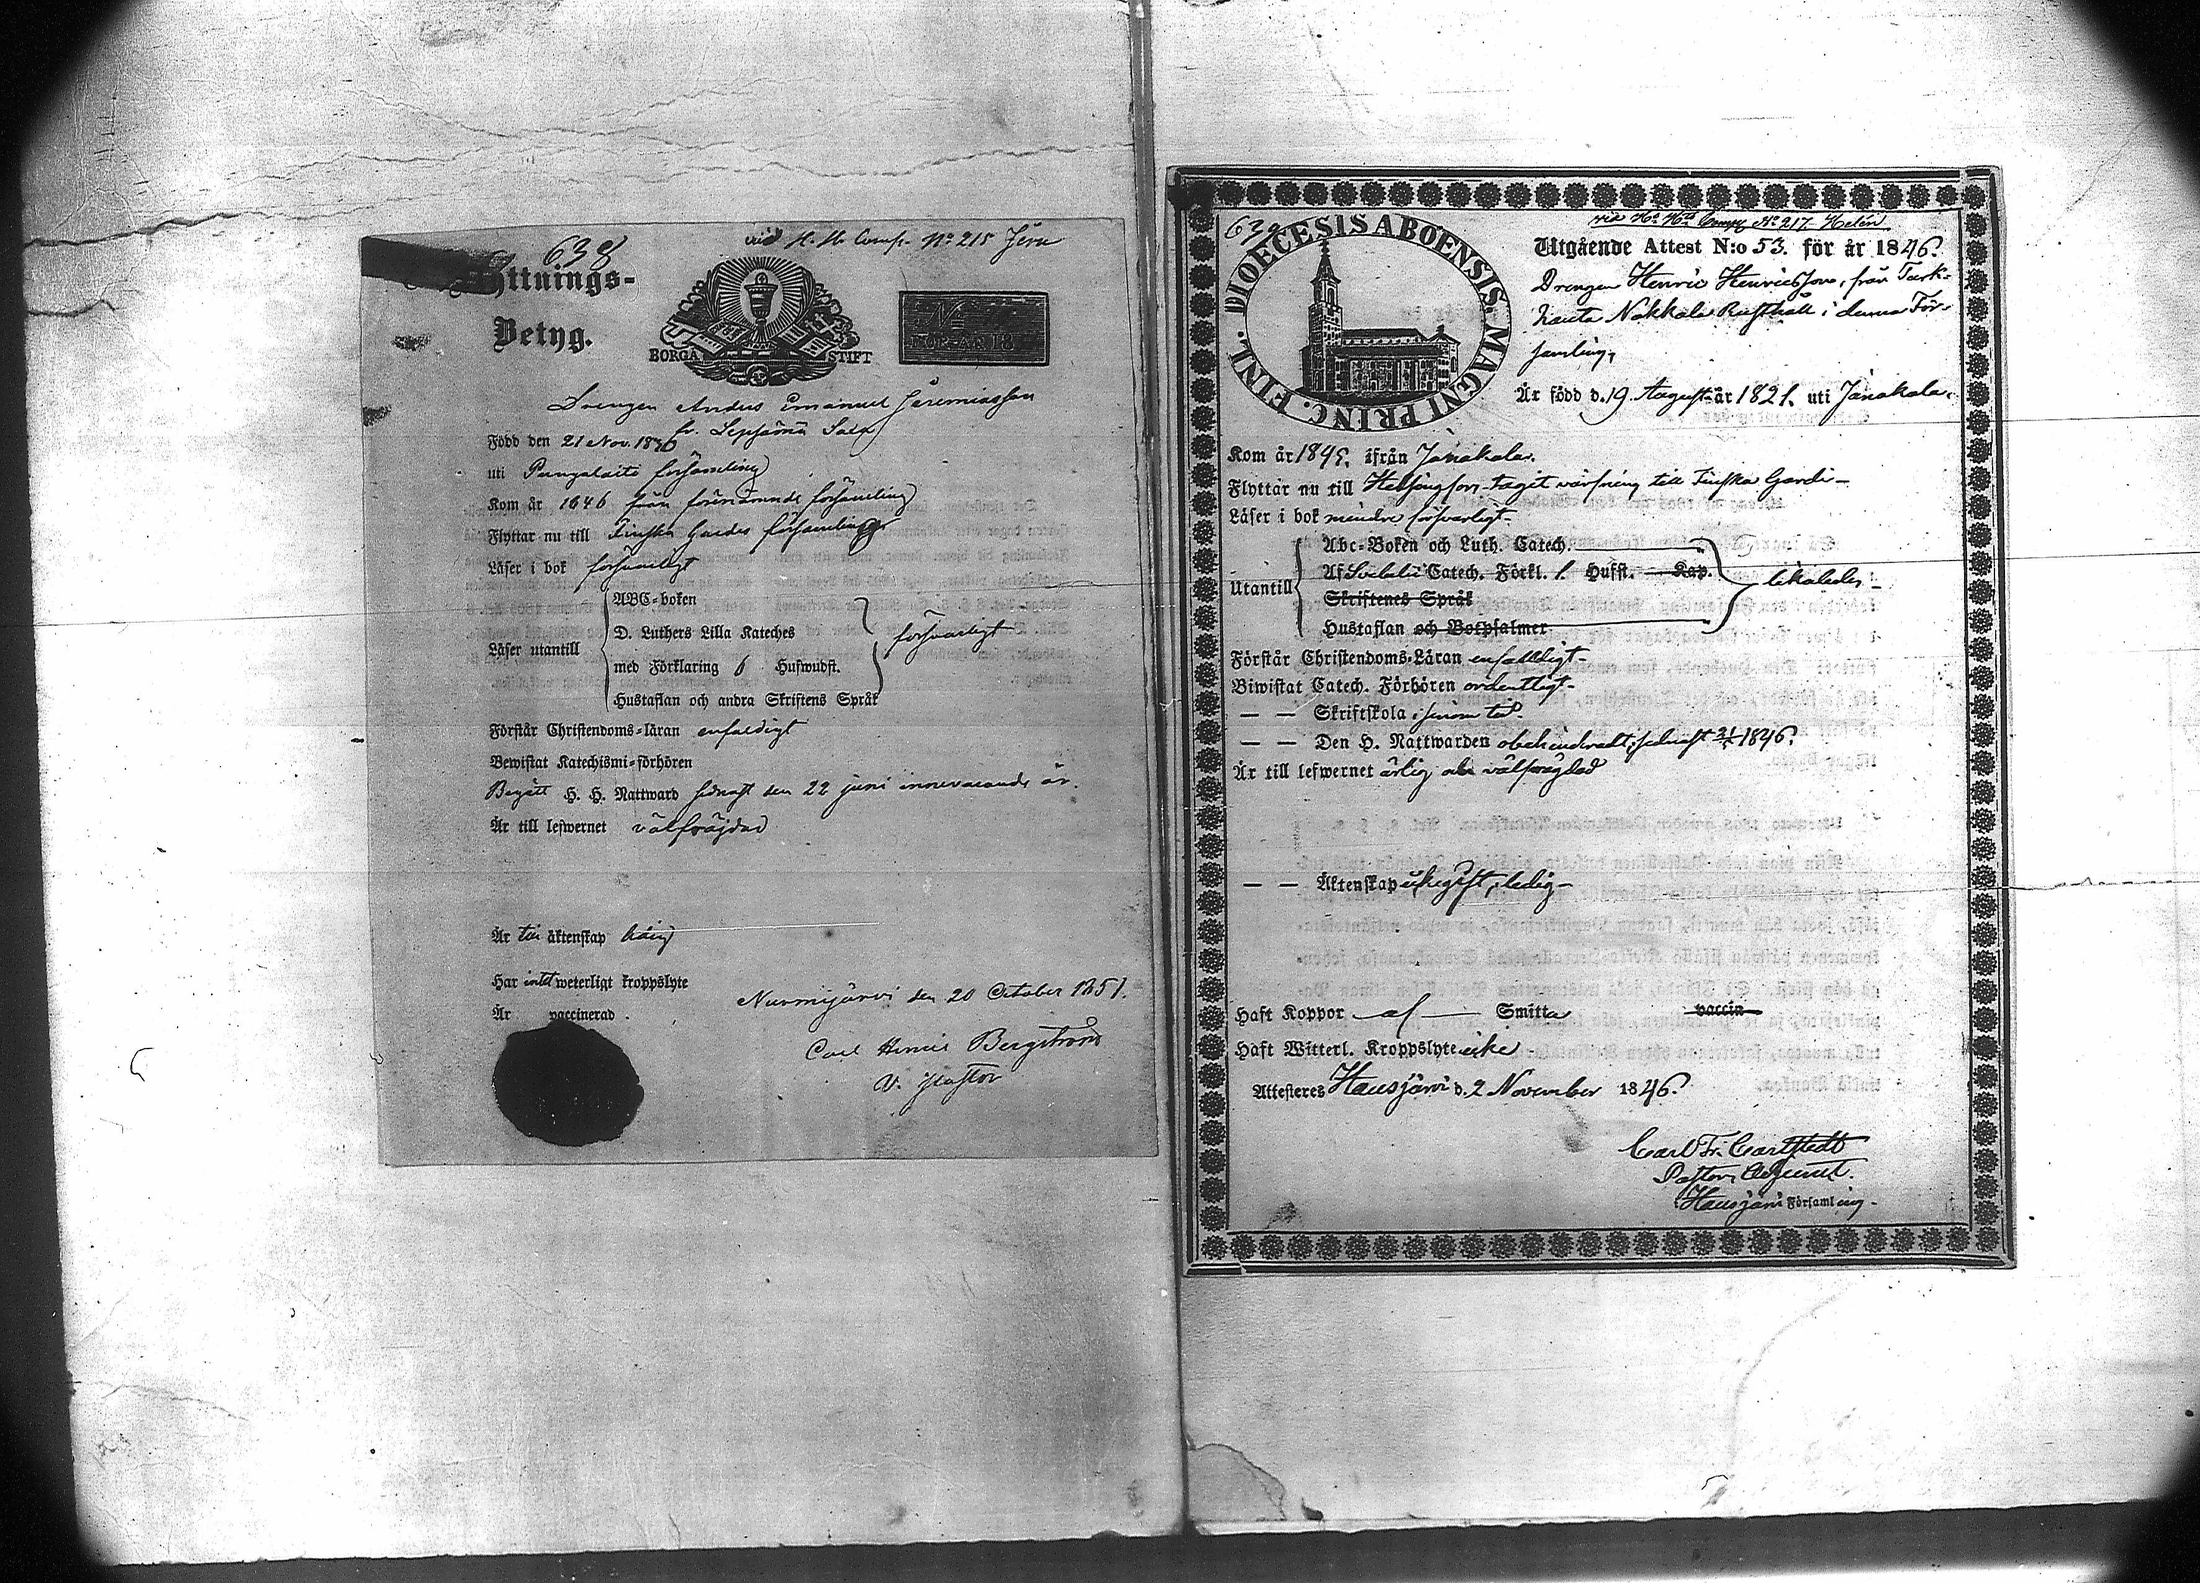 638
vid H. H. Comp. No 215 Jern
ttnings-
Betyg.
BORGÅ STIFT
No
FÖR ÅR 18
Drengen Anders Emanuel Jeremiasson
fr. Leppämä
Född den 21 Nov. 18
uti Pungalaitio församling
Kom år 1846 från förenämnde församling
Flyttar nu till Finska Gardes församling
Läser i bok försvarligt
Läser utantill
ABC-boken
D. Luthers Lilla Kateches
med Förklaring 6 Hufwudst.
Hustaflan och andra Skriftens Språk
försvarligt
Förstår Christendoms-läran enfaldigt
Bewistat Katechismi-förhören
Begått H. H. Nattward sednast den 22 juni innevarande år.
Är till lefwernet välfräjdad
Är till äktenskap ledig
Har intet weterligt kroppslyte
Är vaccinerad.
Nurmijärvi den 20 October 1851.
Carl Henric Bergström
V. Pastor
639
DIOECESIS ABOËNSIS. MAGNI PRINC. FINL.
vid Comp No 217 Helén
Utgående Attest N:o 53. för år 1846.
Drengen Henric Henricsson, från Turk-
hauta Nakkala Rusthåll i denna För-
samling,
Är född d. 19 August år 1821. uti Janakala.
Kom år 1845. ifrån Janakala.
Flyttar nu till Helsingfors. taget värfning till Finska Garde-
Läser i bok mindre försvarligt.
Utantill
Abc-Boken och Luth. Catech.
Af Svebelii Catech. Förkl. 1. Hufst. Kap.
Skriftenes Språk
Hustaflan och Botpsalmer
likaledes
Förstår Christendoms-Läran enfaldigt
Biwistat Catech. Förhören ordentligt-
— — Skriftskola
— — Den H. Nattwarden obehindradt, sednast 1846.
Är till lefwernet ärlig och välfrägdad
— — Äktenskap ogift, ledig-
Haft Koppor af Smitta vaccin
Haft Witterl. Kroppslyte icke
Attesteres Hausjärvi d. 2 November 1846.
Carl Fr. Carlstedt
Pastors Adjunct.
Hausjärvi Församling-